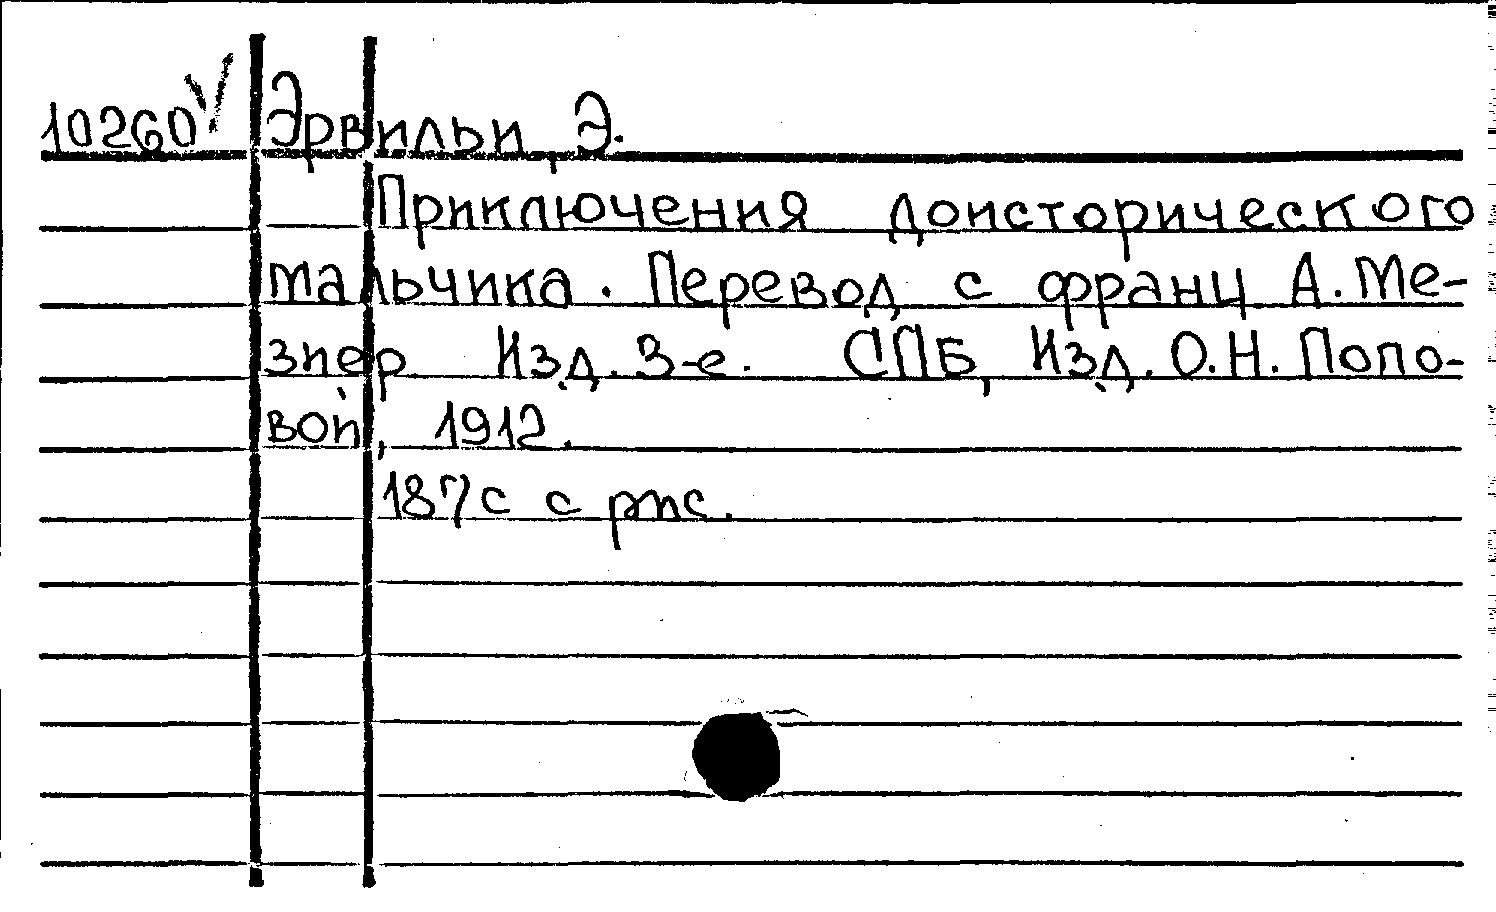 10260 Эрвильи, Э.
Приключения доисторического
мальчика. Перевод с франц А. Ме-
зиер Изд. 3-е. СПБ, Изд. О.Н. Попо-
вой, 1912.
187 с с рис.